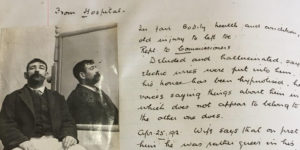 From Hospital.
In fair Bodily health and condition,
old injury to left
Rept to Commissioners
Deluded and hallucinated, says
electric wires were put into him
his house has been hypnotised, h
voices saying things about him in
which does not appear to belong to
the other one does.
Apr. 25. Wife says that on
him he was rather queer in his